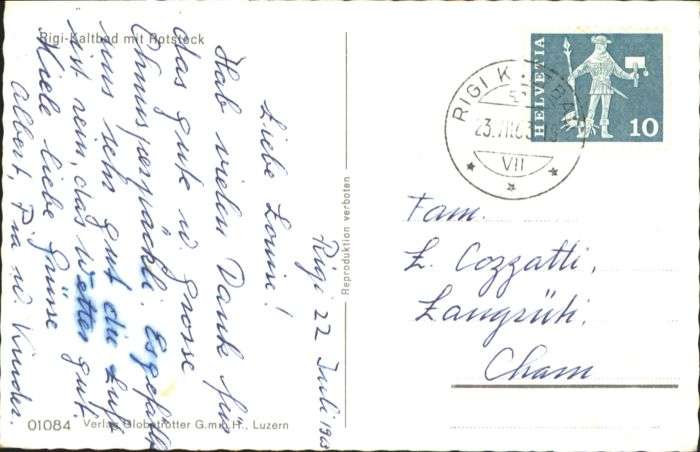 Rigi-Kaltbad mit Rotstock
Rigi 22 Juli 1963
Liebe Louise!
Hab vielen Dank für
das gute u. grosse
Chruspespäckli. Es gefällt
uns sehr gut die Luft
ist rein, das Wetter gut.
Viele liebe Grüsse
Albert, Pia u. Kinder.
01084 Verlag Globetrotter G.m.b.H., Luzern
Reproduktion verboten
RIGI KALTBAD
23.VII.63
VII
HELVETIA
10
Fam.
Z. Cozzatti,
Langrüti.
Cham